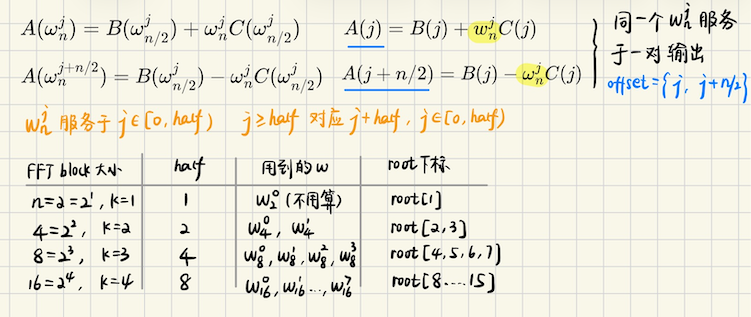 A(ω_n^j) = B(ω_{n/2}^j) + ω_n^j C(ω_{n/2}^j) A(j) = B(j) + w_n^j C(j)
A(ω_n^{j+n/2}) = B(ω_{n/2}^j) − ω_n^j C(ω_{n/2}^j) A(j + n/2) = B(j) − ω_n^j C(j)
同一个 W_n^j 服务
于一对输出
offset={j, j+n/2}
W_n^j 服务于 j∈[0, half) j≥half 对应 j+half, j∈[0, half)
FFT block 大小 half 用到的 w root下标
n=2=2^1, k=1 1 W_2^0 (不用算) root[1]
4=2^2, k=2 2 W_4^0, W_4^1 root[2,3]
8=2^3, k=3 4 W_8^0, W_8^1, W_8^2, W_8^3 root[4,5,6,7]
16=2^4, k=4 8 W_16^0, W_16^1..., W_16^7 root[8....15]